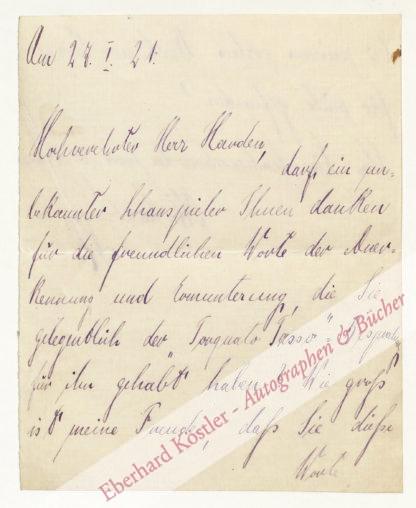 Am 28. I. 21.
Hochverehrter Herr Harden,
darf ein un-
bekannter Schauspieler Ihnen danken
für die freundlichen Worte der Aner-
kennung und Ermunterung, die Sie
gelegentlich der "Torquato Tasso"-
für ihn gehabt haben. Wie groß
ist meine Freude, daß Sie diese
Worte
Eberhard Köstler - Autographen & Bücher